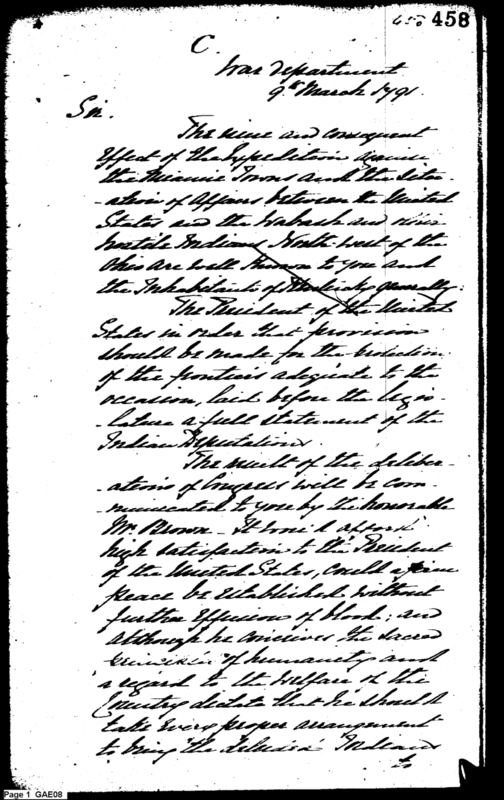 650 458
C.
War department
9th March 1791.
Sir.
The issue and consequent
effect of the Expedition against
the Miami Towns and the Situ-
-ation of Affairs between the United
States and the Wabash and other
hostile Indians North west of the
Ohio are well known to you and
the Inhabitants of Kentucky generally.
The President of the United
States in order that provision
should be made for the protection
of the frontiers adequate to the
occasion, laid before the legis-
-lature a full statement of the
Indian Depredations.
The result of the deliber-
-ations of Congress will be com-
-municated to you by the honorable
Mr. Brown – It would afford
high satisfaction to the President
of the United States, could a firm
peace be established without
further effusion of blood; and
although he conceives the sacred
of humanity and
a regard to the welfare of the
Country dictate that he should
take every proper arrangement
to bring the deluded Indians
to
Page 1 GAE08